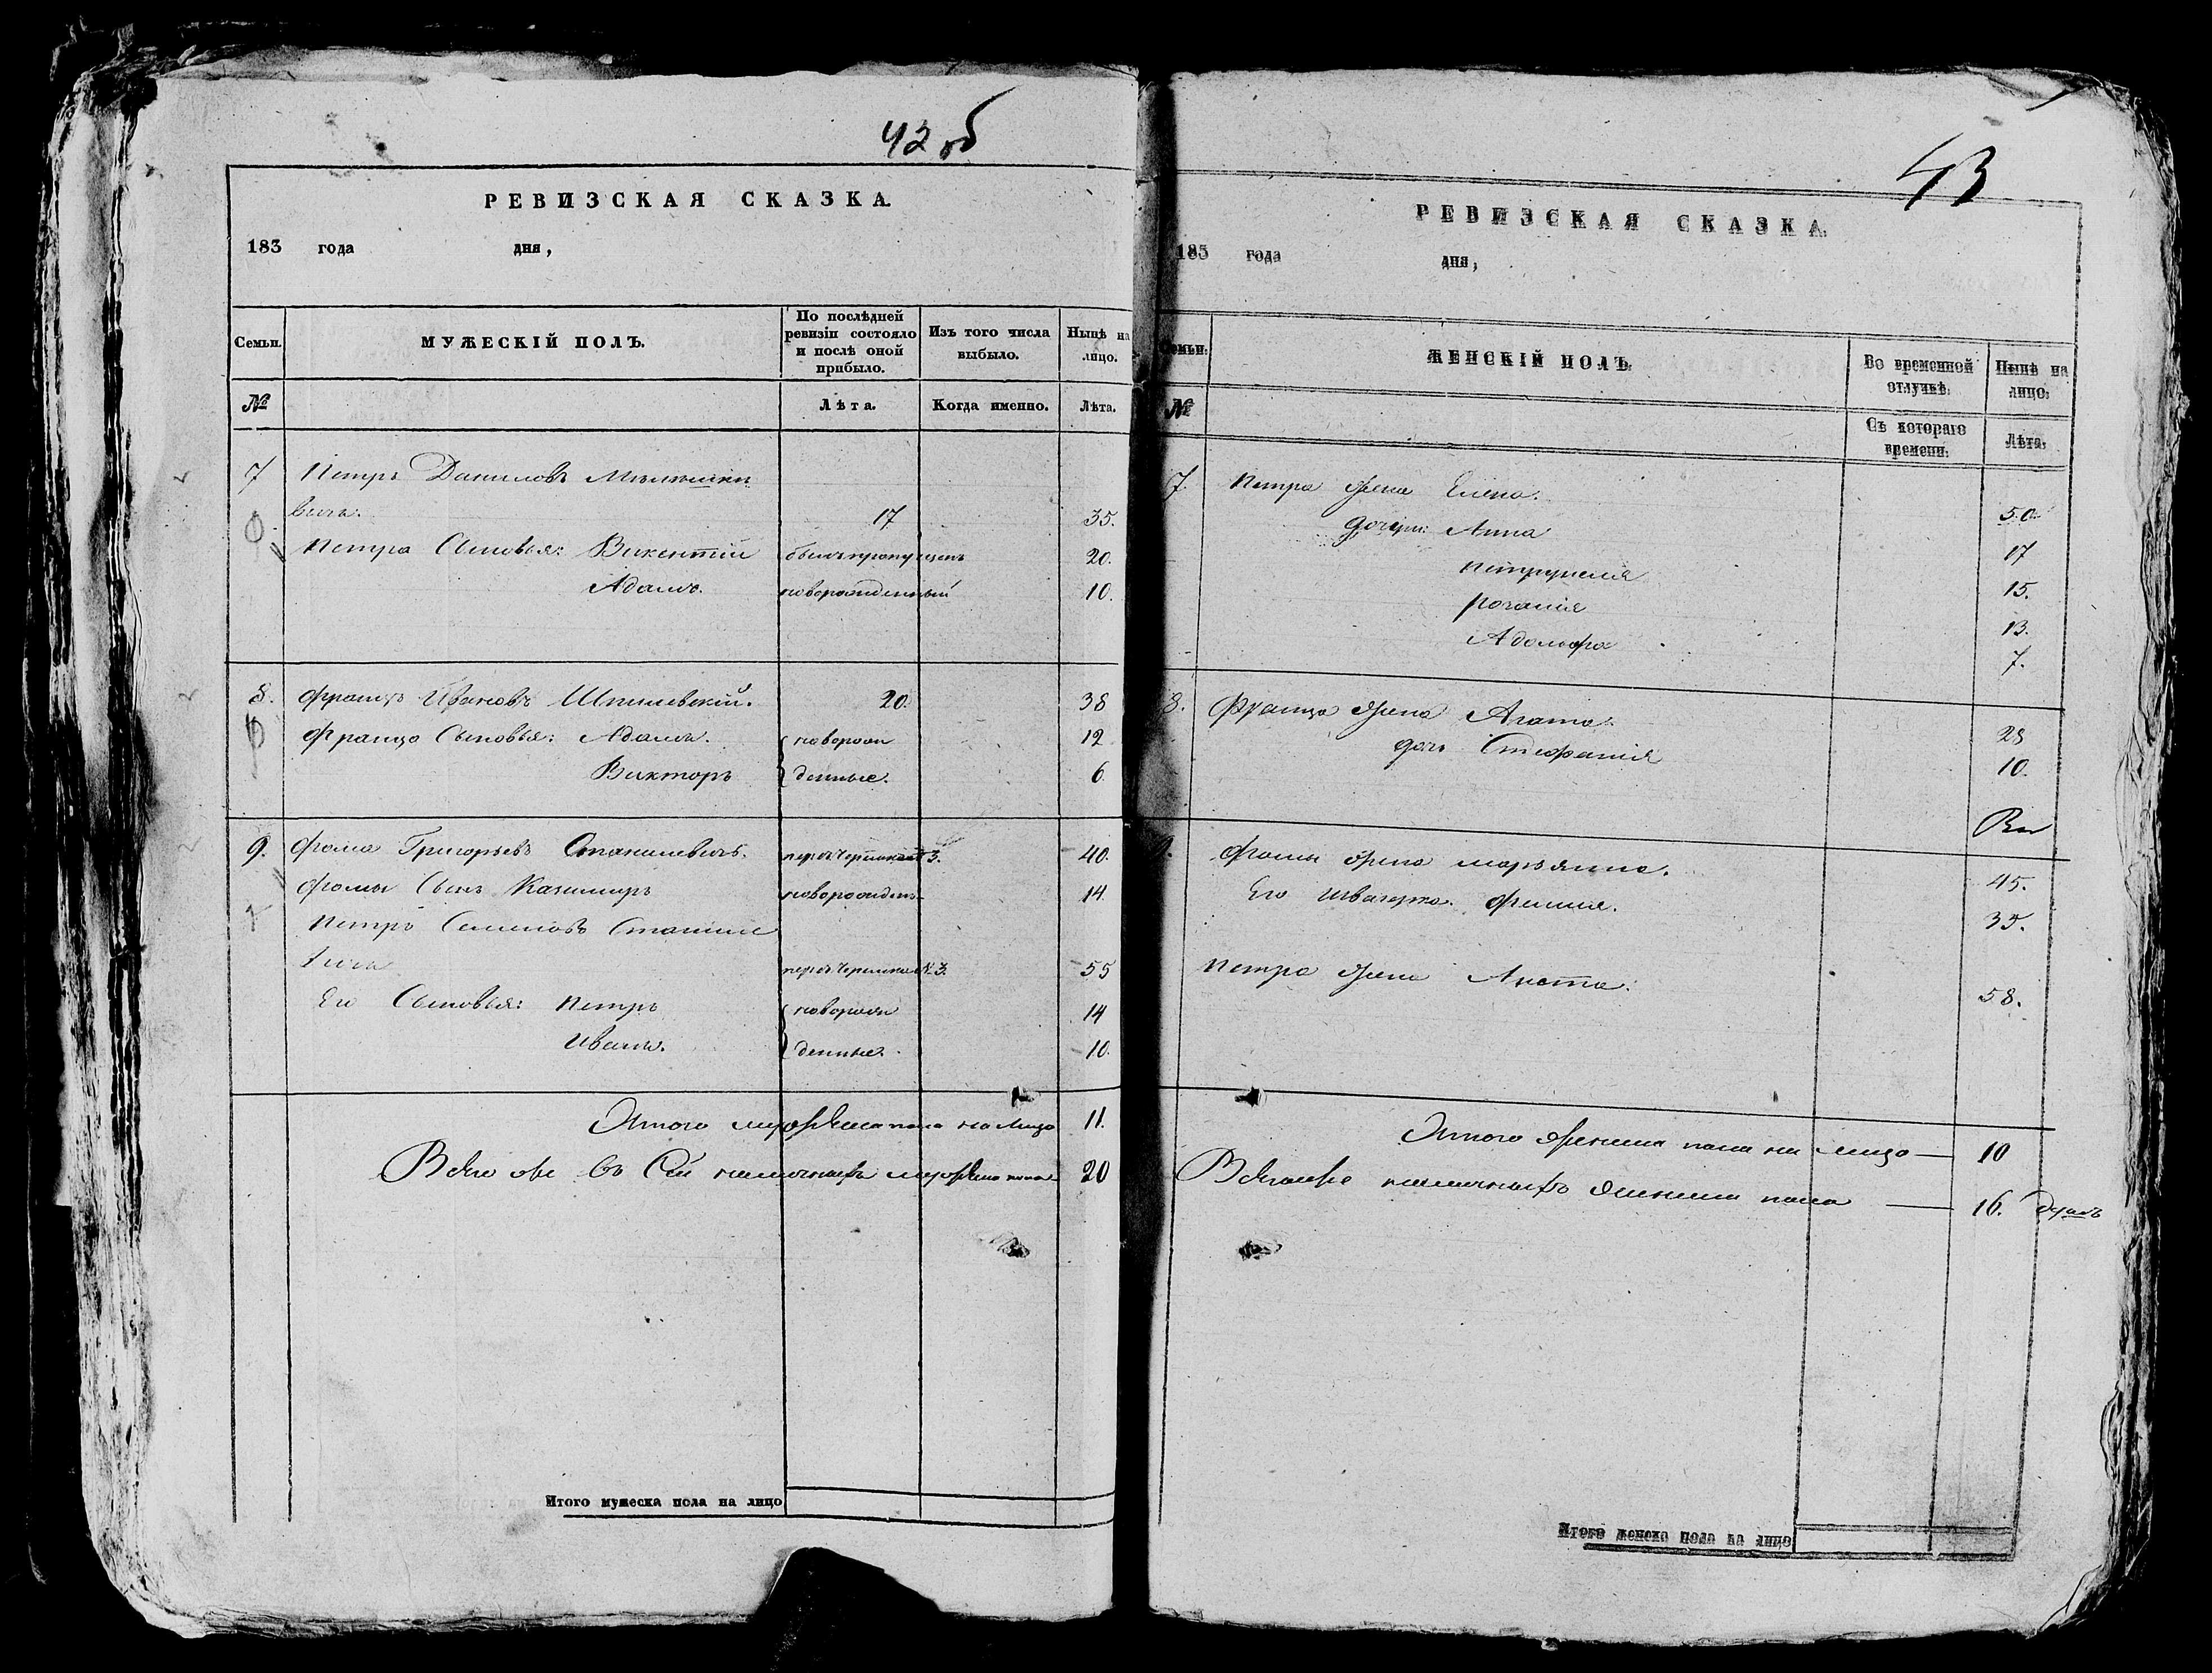 42 об
РЕВИЗСКАЯ СКАЗКА.
183 года дня,
Семьи. МУЖЕСКІЙ ПОЛЪ. По послѣдней ревизіи состояло и послѣ оной прибыло. Изъ того числа выбыло. Нынѣ на лицо.
№ Лѣта. Когда именно. Лѣта.
7 Петръ Даниловъ
вичъ. 17 35.
Петра Сыновья: Викентій былъ пропущенъ 20.
Адамъ. новорожденный 10.
8. Францъ Ивановъ Шпилевскій. 20. 38
Франца Сыновья: Адамъ. новорож 12
Викторъ денные. 6
9. Фома Григорьевъ Станилевичъ. 3. 40.
Фомы Сынъ Казимиръ новорожден. 14
Петръ Семеновъ Станиле
вичъ № 3. 55
Его Сыновья: Петръ новорож 14
Иванъ. денные. 10.
Итого мужеска пола на лицо 11.
Всего же въ Сей наличныхъ мужеска пола 20
Итого мужеска пола на лицо
43
РЕВИЗСКАЯ СКАЗКА.
183 года дня,
Семьи. ЖЕНСКІЙ ПОЛЪ. Во временной отлучкѣ. Нынѣ на лицо.
№ Съ котораго времени. Лѣта.
7. Петра жена Елена. 50
дочери: Анна 17
Петрунеля 15.
13.
Адольфа 7.
8. Франца жена Агата. 28
дочь Стефанія 10.
9. Фомы жена Марьянна. 45.
Его швагерка 35.
Петра жена Анета. 58.
Итого женска пола на лицо — 10
Всего же наличныхъ женска пола — 16. душъ
Итого женска пола на лицо